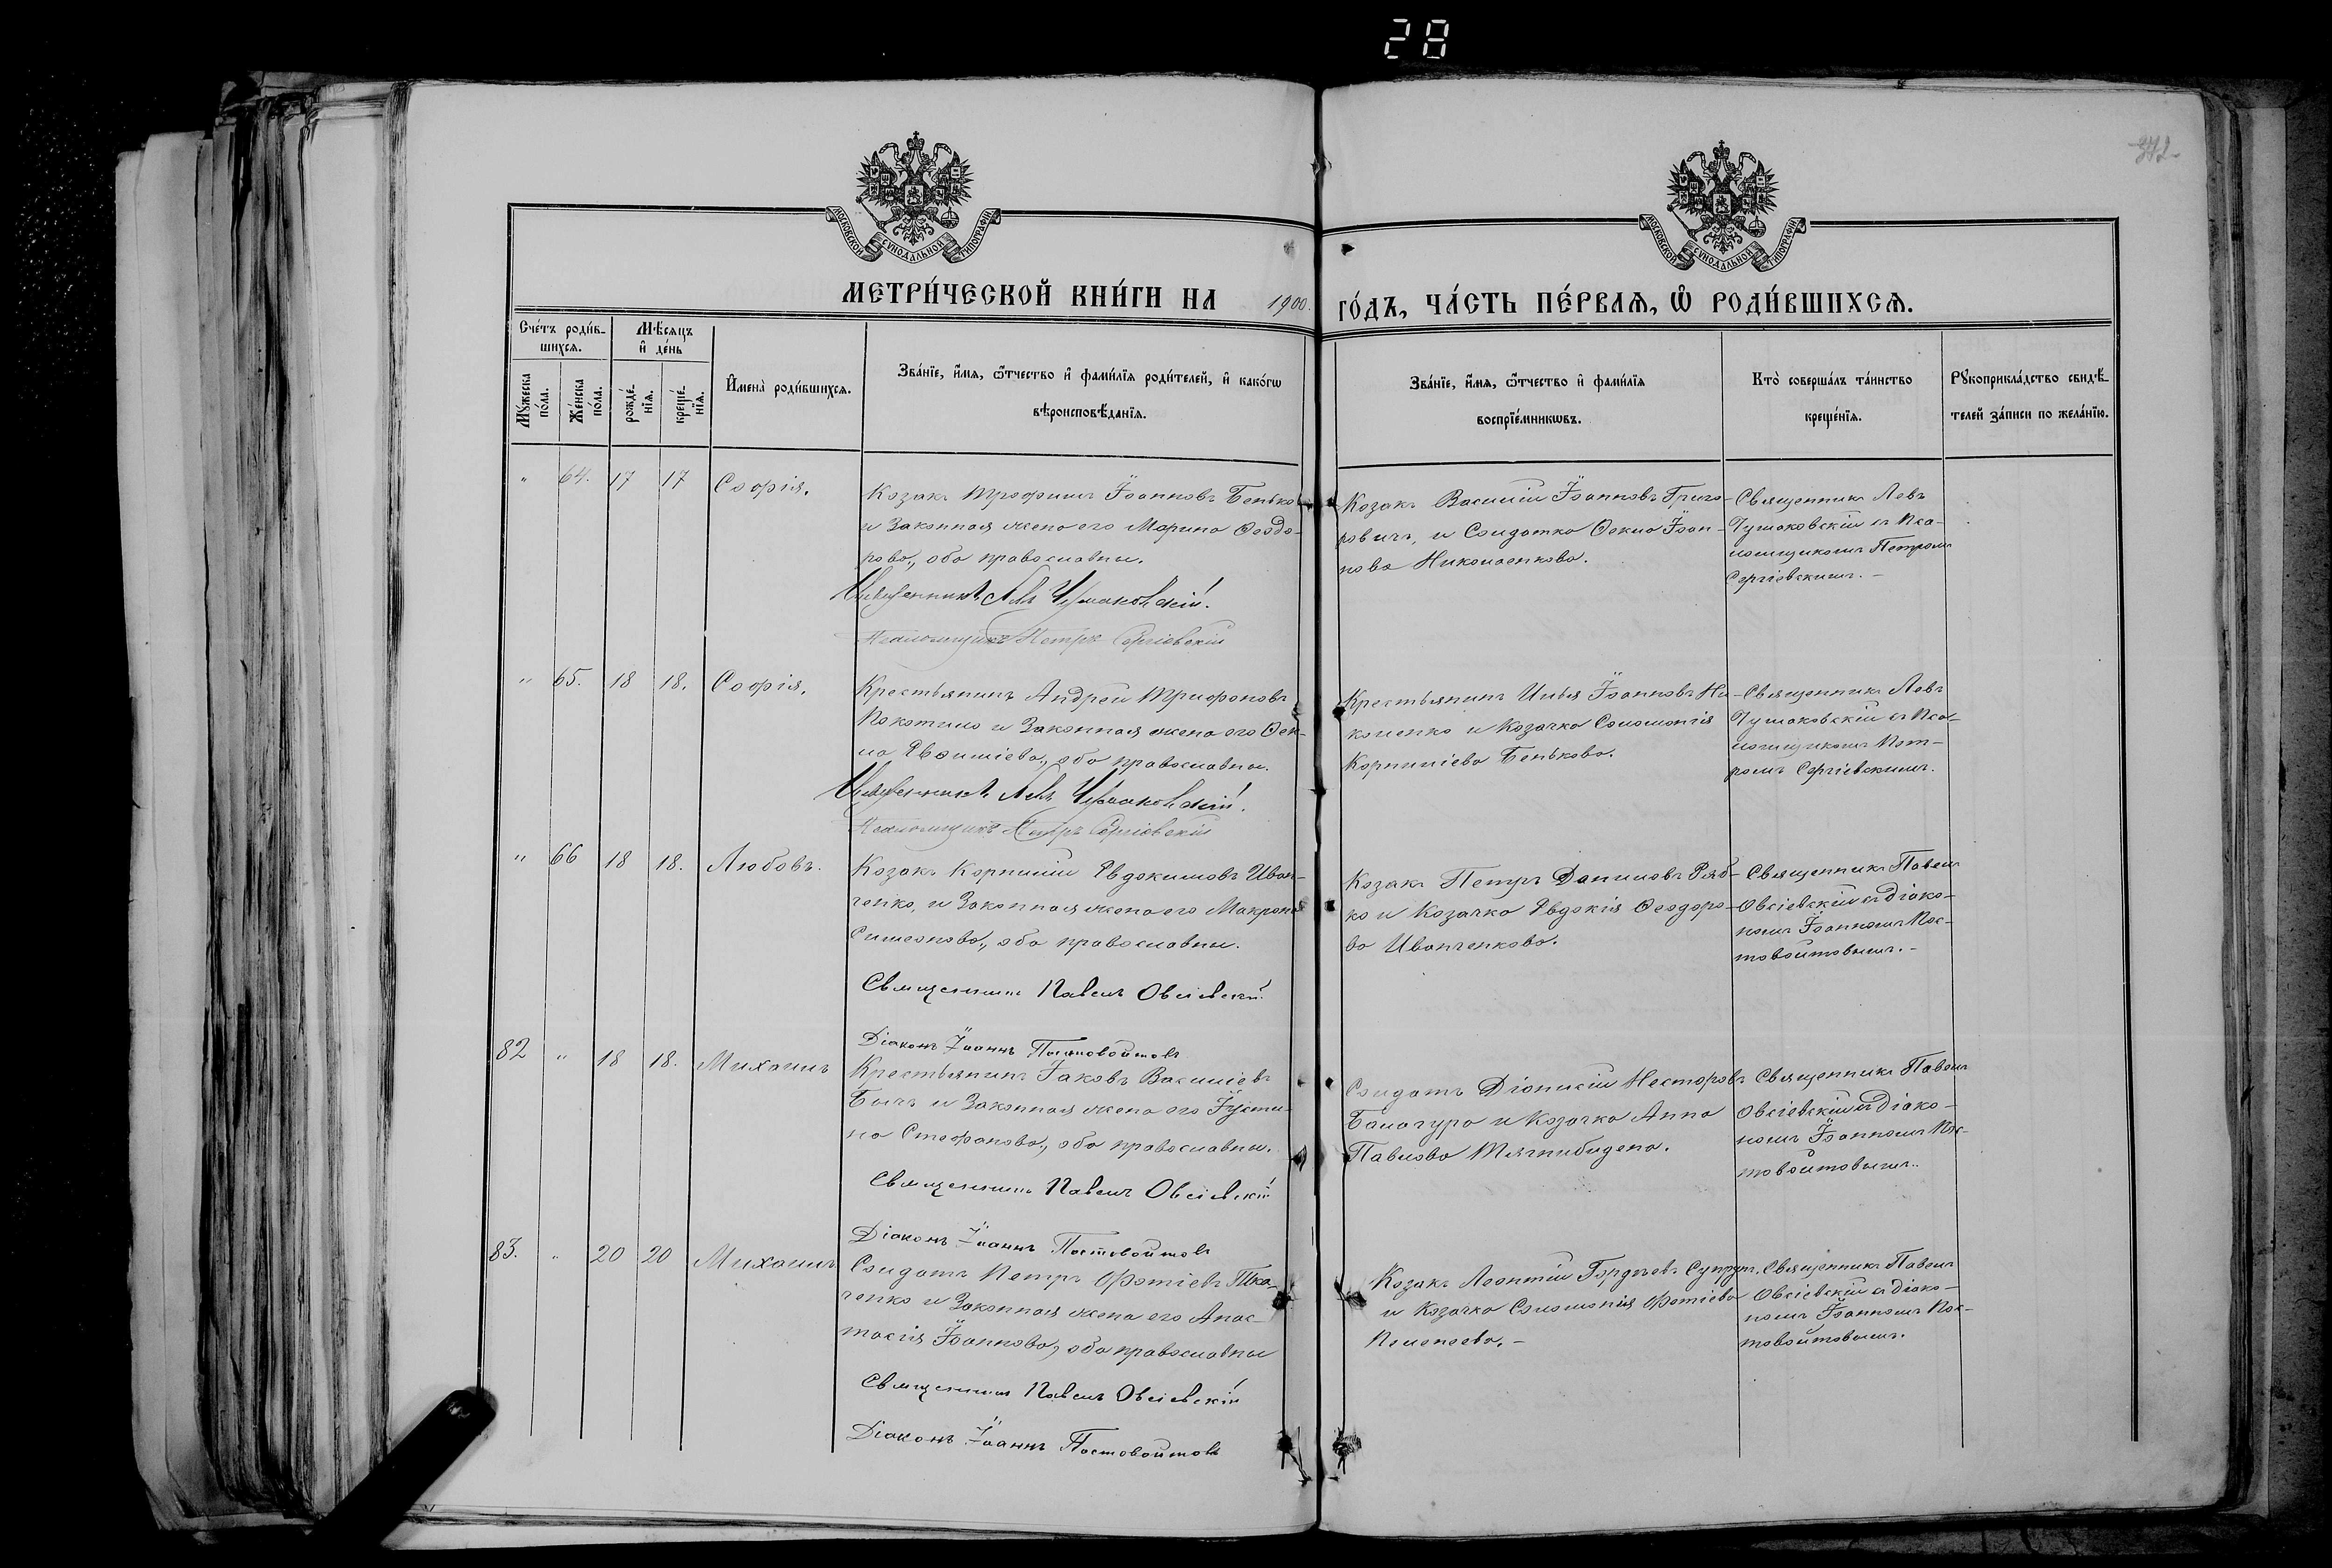 28
372
МОСКОВСКОЙ СѴНОДАЛЬНОЙ ТИПОГРАФІИ
МОСКОВСКОЙ СѴНОДАЛЬНОЙ ТИПОГРАФІИ
МЕТРИ́ЧЕСКОЙ КНИ́ГИ НА 1900. ГО́ДЪ, ЧА́СТЬ ПЕ́РВАѦ, Ѽ РОДИ́ВШИХСѦ.
Сче́тъ роди́в-
шихсѧ.
Мѣ́сяцъ
и҆ де́нь
Мꙋ́жеска по́ла.
Же́нска по́ла.
рожде́-
нїѧ.
креще́-
нїѧ.
И҆мена̀ роди́вшихсѧ.
Зва́нїе, и҆́мѧ, ѻ҆́тчество и҆ фами́лїѧ роди́телей, и҆ како́гѡ
вѣроисповѣ́данїѧ.
Зва́нїе, и҆́мѧ, ѻ҆́тчество и҆ фами́лїѧ
воспрїе́мникѡвъ.
Кто̀ соверша́лъ та́инство
креще́нїѧ.
Рꙋкоприкла́дство свидѣ́-
телей за́писи по жела́нїю.
" 64. 17 17 Софія.
Козакъ Трофимъ Іоанновъ Бенько
и законная жена его Марина Ѳеодо-
рова, оба православны.
Священникъ Левъ Чушаковскій.
Псаломщикъ Петръ Сергіевскій
Козакъ Василій Іоанновъ Григо-
ровичъ, и Солдатка Ѳекла Іоан-
нова Николаенкова.
Священникъ Левъ
Чушаковскій съ Пса-
ломщикомъ Петромъ
Сергіевскимъ. -
" 65. 18 18. Софія.
Крестьянинъ Андрей Трифоновъ
Покотило и законная жена его Ѳек-
ла Евфиміева, оба православны.
Священникъ Левъ Чушаковскій.
Псаломщикъ Петръ Сергіевскій
Крестьянинъ Илья Іоанновъ Ни-
коленко и Козачка Соломонія
Корниліева Бенькова.
Священникъ Левъ
Чушаковскій съ Пса-
ломщикомъ Пет-
ромъ Сергіевскимъ.
" 66 18 18. Любовь.
Козакъ Корнилій Евдокимовъ Иван-
ченко, и законная жена его Макрона
Симеонова, оба православны.
Священникъ Павелъ Овсіевскій
Діаконъ Іоаннъ Постовойтовъ
Козакъ Петръ Даниловъ Ряб-
ко и Козачка Евдокія Ѳеодоро-
ва Иванченкова.
Священникъ Павелъ
Овсіевскій съ Діако-
номъ Іоанномъ Пос-
товойтовымъ. -
82 " 18 18. Михаилъ
Крестьянинъ Іаковъ Василіевъ
Бычъ и законная жена его Іусти-
на Стефанова, оба православны.
Священникъ Павелъ Овсіевскій
Діаконъ Іоаннъ Постовойтовъ
Солдатъ Діонисій Несторовъ
Балагура и Козачка Анна
Павлова Тягнибидена.
Священникъ Павелъ
Овсіевскій съ Діако-
номъ Іоанномъ Пос-
товойтовымъ.
83. " 20 20 Михаилъ
Солдатъ Петръ Фотіевъ Тка-
ченко и законная жена его Анас-
тасія Іоаннова, оба православны
Священникъ Павелъ Овсіевскій
Діаконъ Іоаннъ Постовойтовъ
Козакъ Леонтій Гордѣевъ Супрун.
и Козачка Соломонія Фотіева
Священникъ Павелъ
Овсіевскій съ Діако-
номъ Іоанномъ Пос-
товойтовымъ.